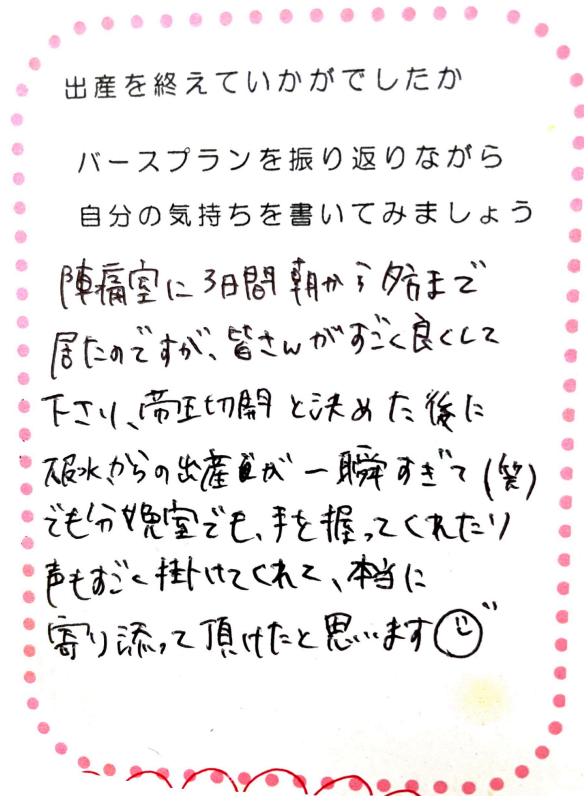 出産を終えていかがでしたか
バースプランを振り返りながら
自分の気持ちを書いてみましょう
陣痛室に3日間朝から夕方まで
居たのですが、皆さんがすごく良くして
下さり、帝王切開と決めた後に
破水からの出産が一瞬すぎて(笑)
でも分娩室でも、手を握ってくれたり
声もすごく掛けてくれて、本当に
寄り添って頂けたと思います